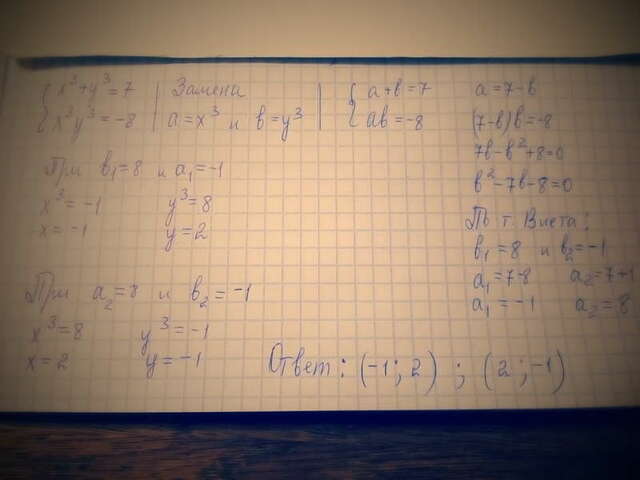 { x³+y³=7 | Замена | { a+b=7 a=7-b
x³y³=-8 | a=x³ и b=y³ | ab=-8 (7-b)b=-8
7b-b²+8=0
b²-7b-8=0
По т. Виета:
b₁=8 и b₂=-1
a₁=7-8 a₂=7+1
a₁=-1 a₂=8
При b₁=8 и a₁=-1
x³=-1 y³=8
x=-1 y=2
При a₂=8 и b₂=-1
x³=8 y³=-1
x=2 y=-1
Ответ: (-1; 2) ; (2 ; -1)